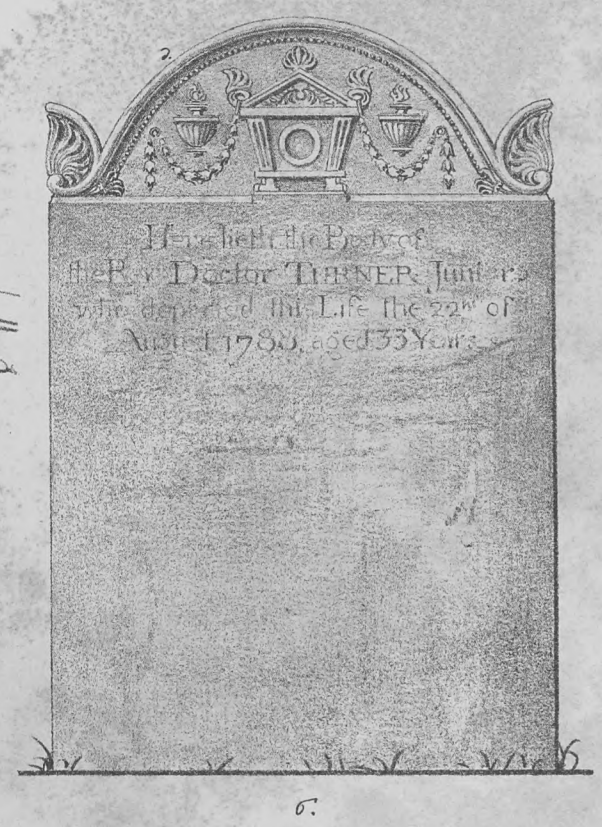 2.
Here lieth the Body of
the Revd Doctor TURNER Junior
who departed this Life the 22nd of
August 1788, aged 33 Years
6.